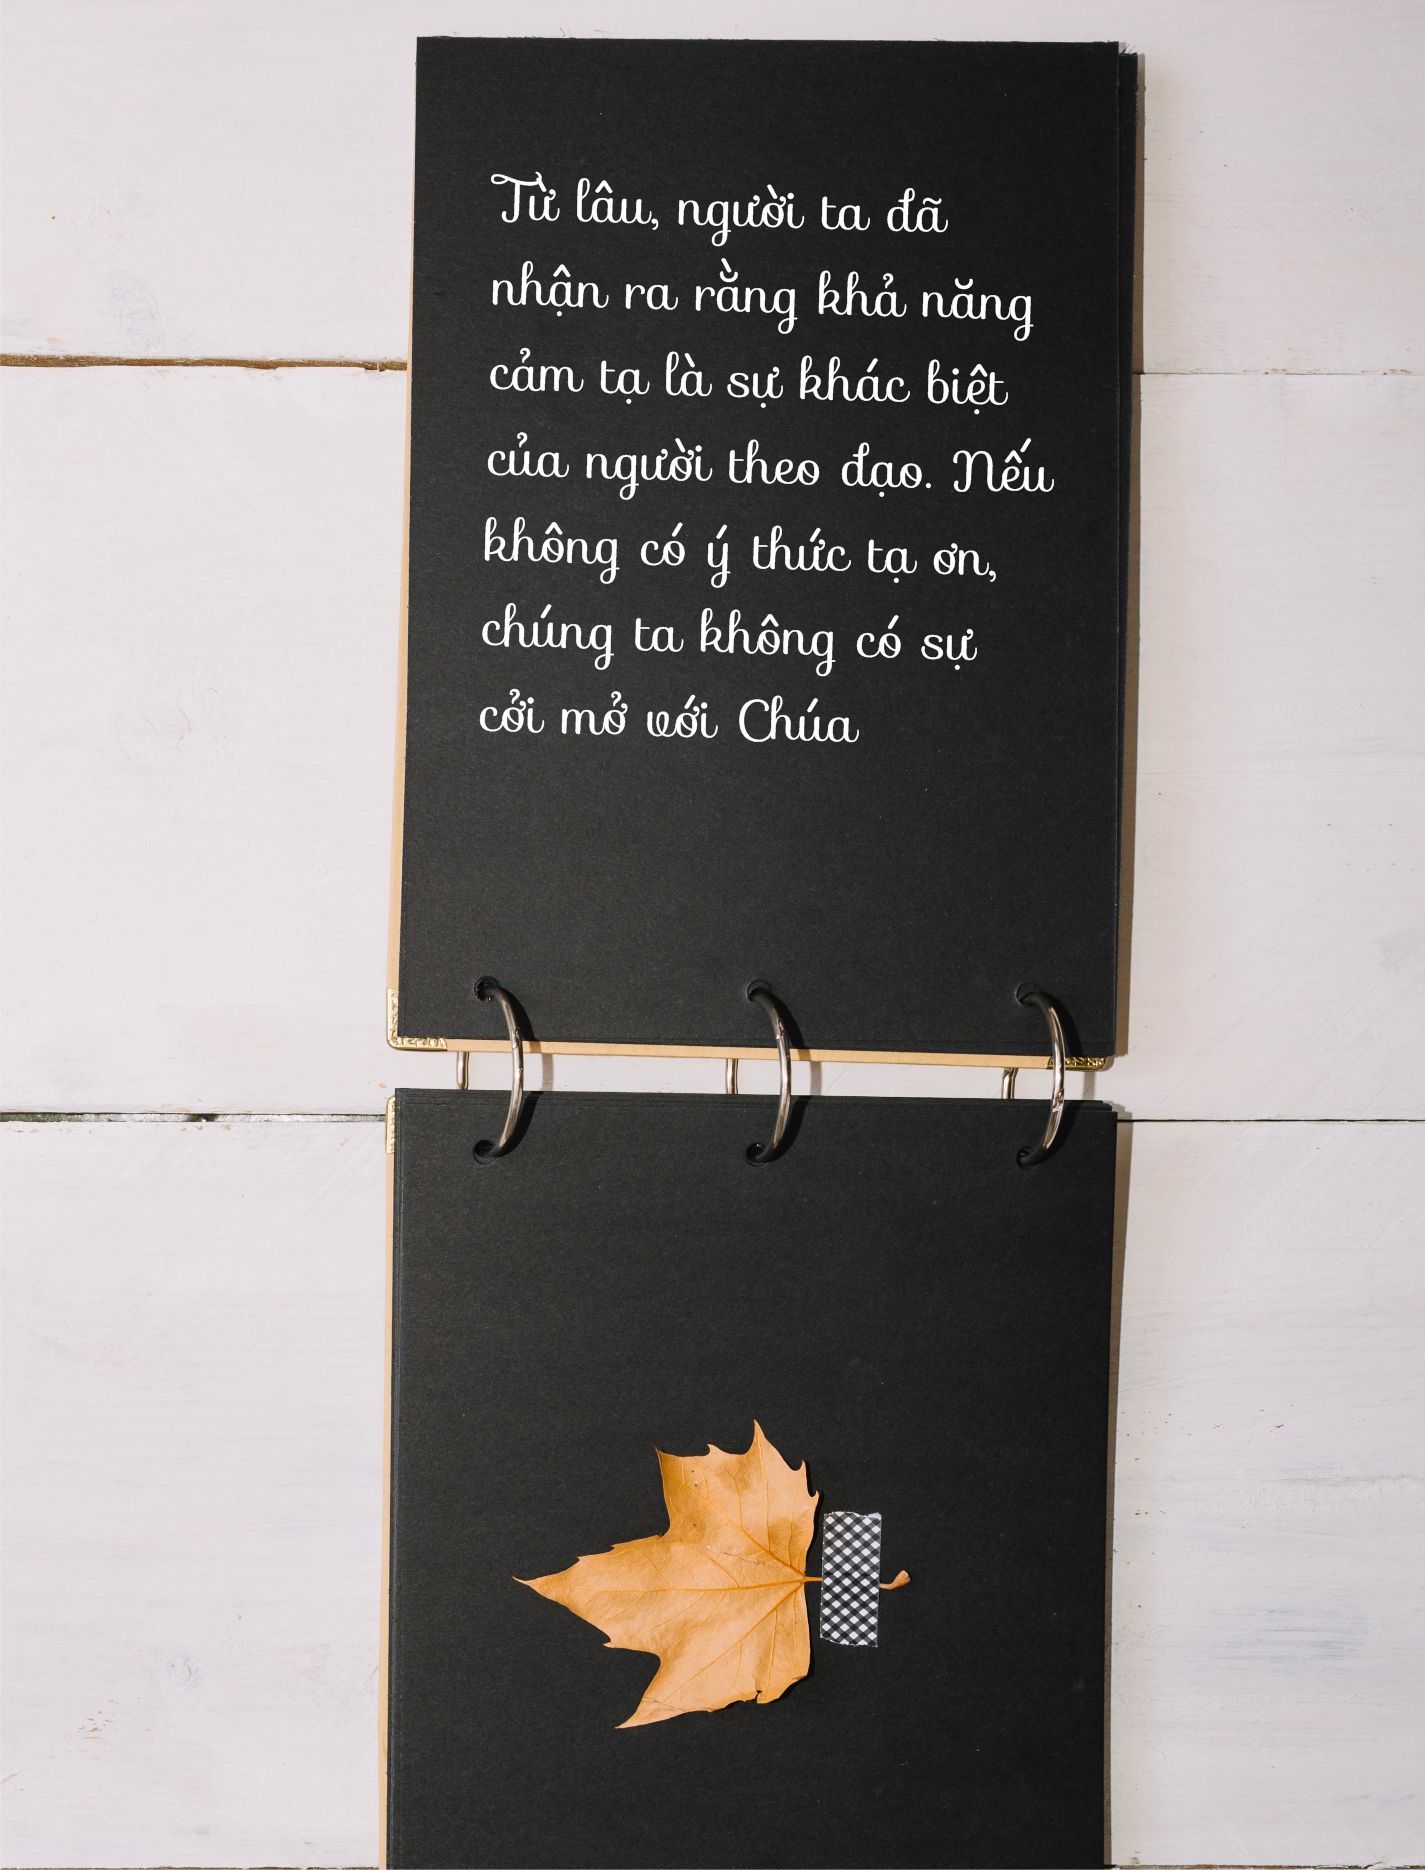 Từ lâu, người ta đã
nhận ra rằng khả năng
cảm tạ là sự khác biệt
của người theo đạo. Nếu
không có ý thức tạ ơn,
chúng ta không có sự
cởi mở với Chúa